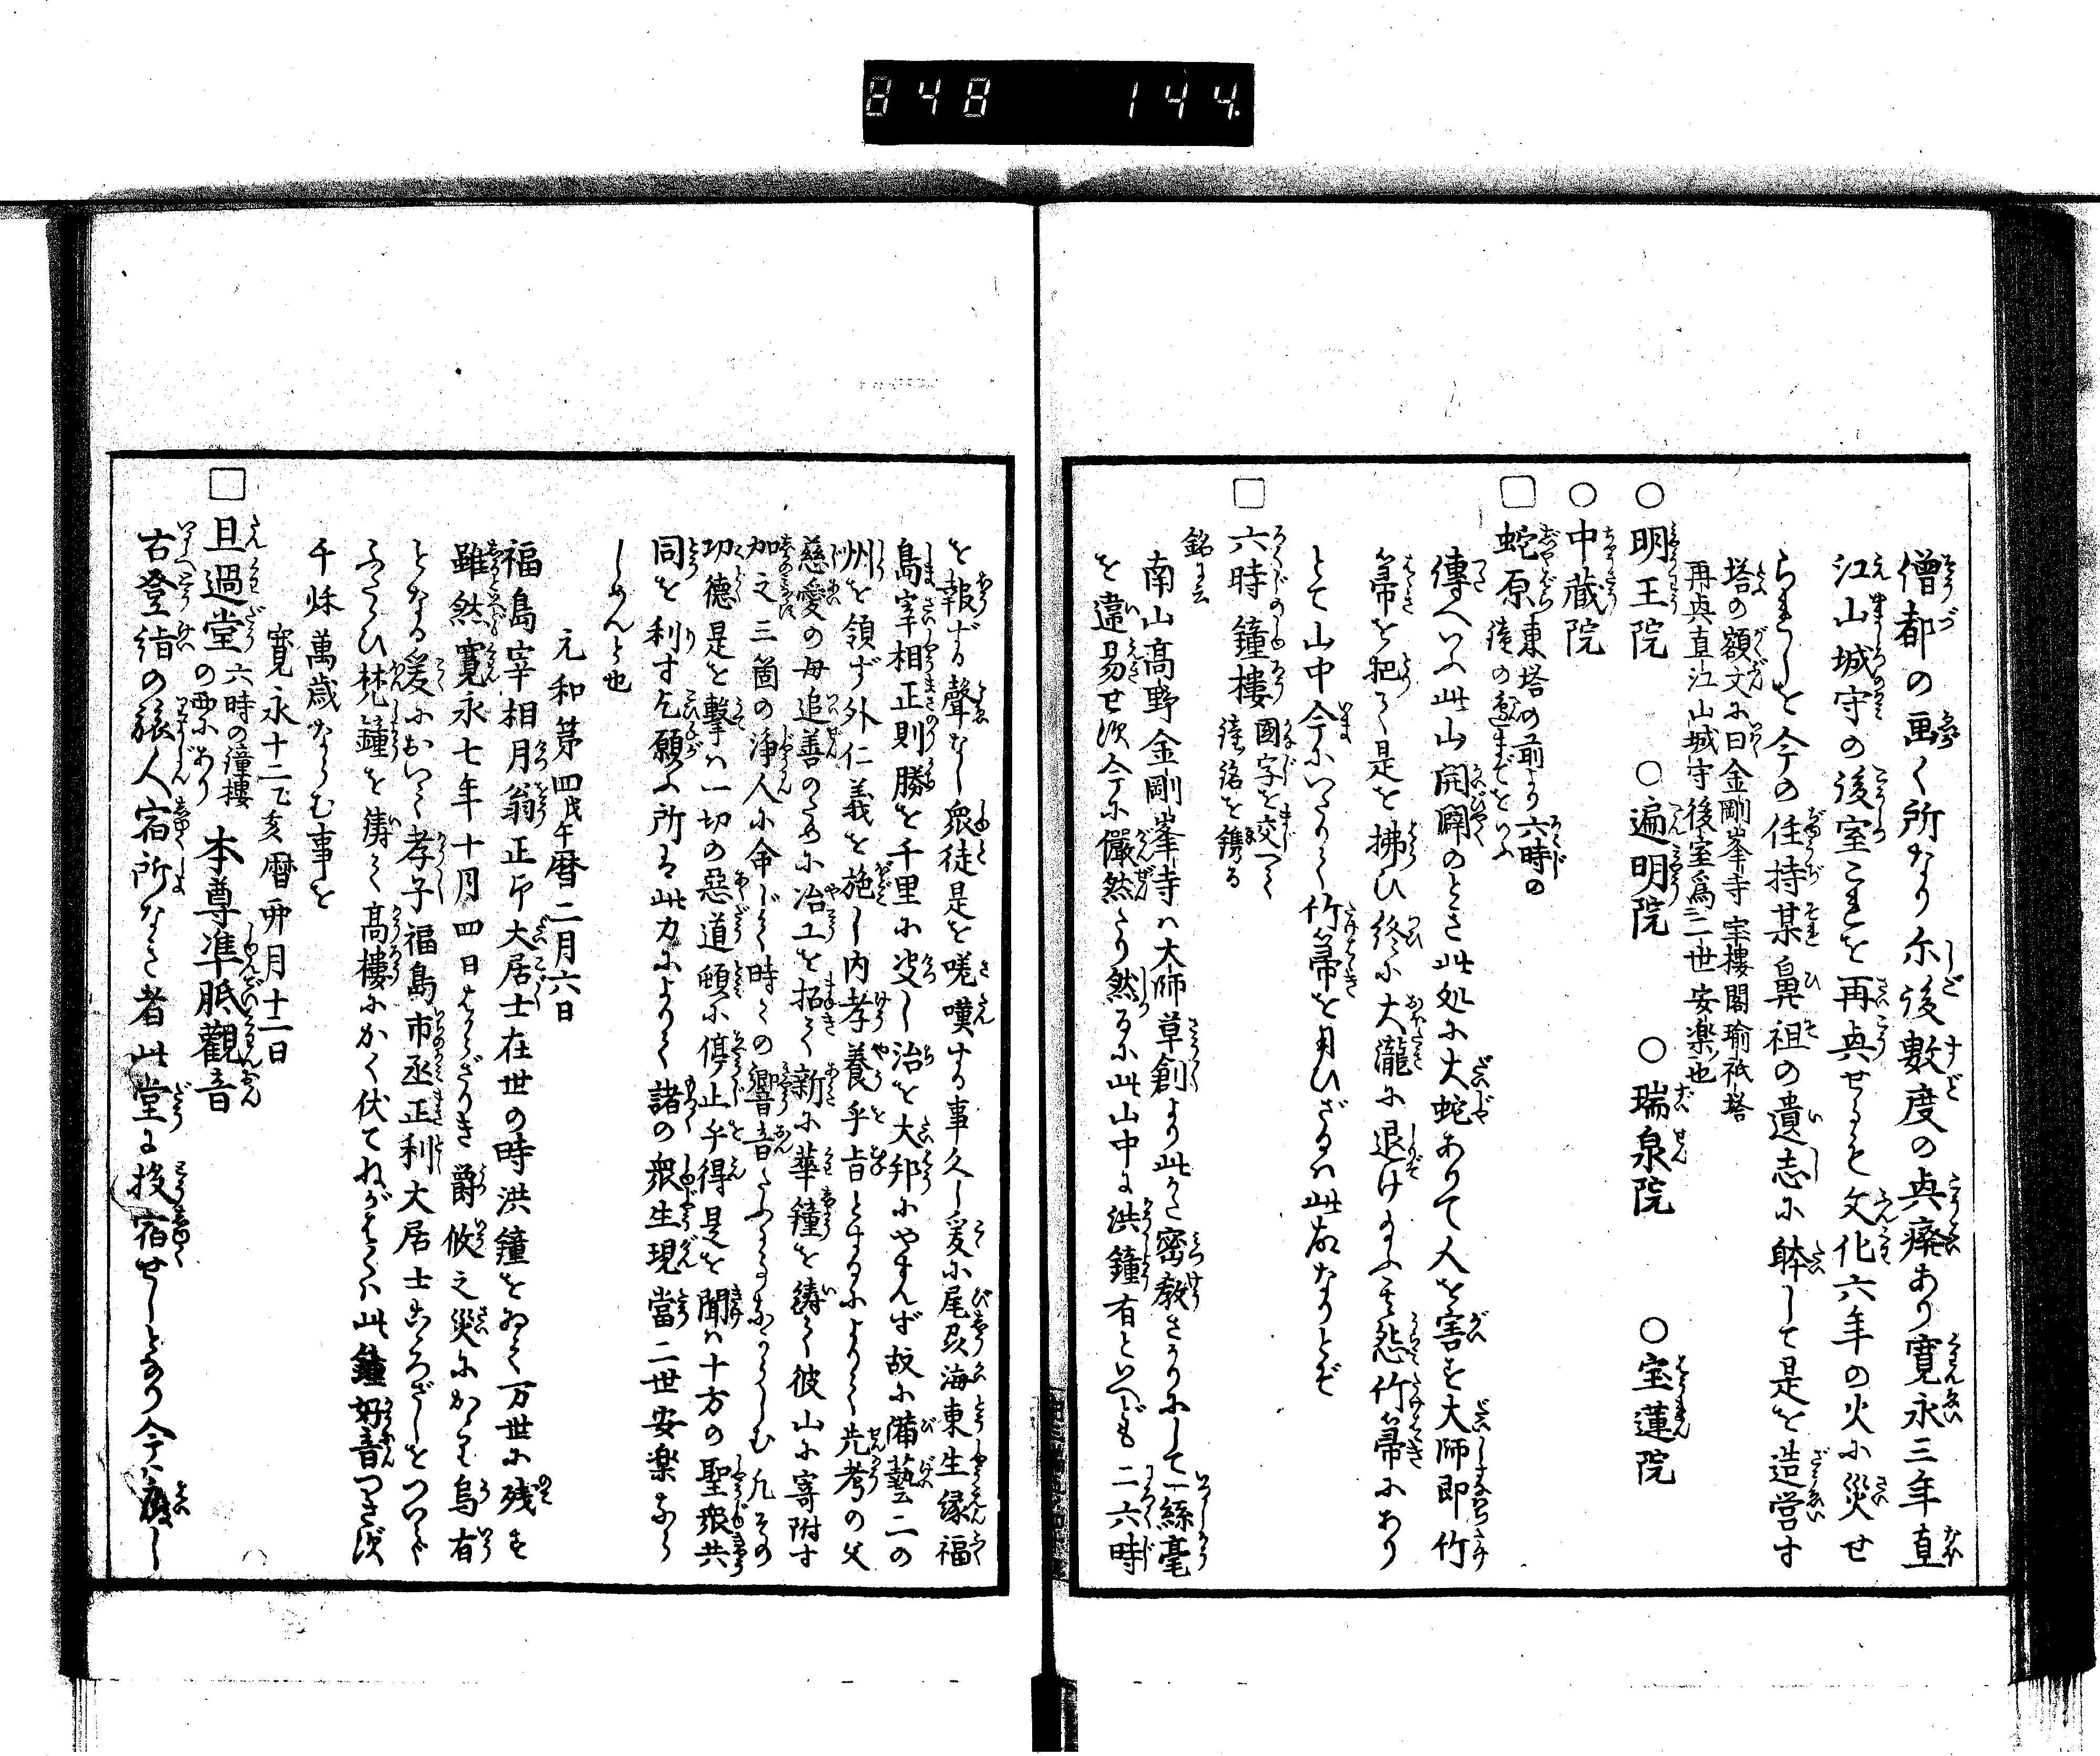 848 144.
僧都の画く所なり尓後数度の興廃あり寛永三年直
江山城守の後室これを再興せるも文化六年の火に災せ
られしを今の住持某鼻祖の遺志に体して是を造営す
塔の額文に曰金剛峯寺宝楼閣瑜祇塔
再興直江山城守後室為二世安楽也
○明王院 ○遍明院 ○瑞泉院 ○宝蓮院
○中蔵院
□蛇原 東塔の前より六時の
徒の辺までをいふ
傳へいふ此山開闢のとき此処に大蛇ありて人を害す大師即竹
箒を把て是を拂ひ終に大瀧に退け給ふ其怨竹箒にあり
とて山中今にいたりて竹箒を用ひざるは此故なりとぞ
□六時鐘樓 國字を交へて
銘を鐫る
銘云
南山高野金剛峯寺ハ大師草創より此かた密教さかりにして一絲毫
を違易せず今に儼然たり然るに此山中に洪鐘有といへども二六時
を報ずる聲なし衆徒是を嗟嘆する事久し爰に尾刕海東生縁福
島宰相正則勝を千里に决し治を大邦にやすんず故に備藝二の
州を領ず外仁義を施し内孝養を旨とするによりて先考の父
慈愛の母追善のために冶工を招て新に華鐘を鋳て彼山に寄附す
加之三箇の浄人に命じて時々の響音たへざらしむ凡その
功徳是を撃ハ一切の惡道頓に停止を得是を聞ハ十方の聖衆共
同を利す乞願ふ所は此力によりて諸の衆生現當二世安楽ならしめんと也
元和第四戊午暦二月六日
福島宰相月翁正印大居士在世の時洪鐘をゐて万世に残す
雖然寛永七年十月四日はからざりき爵攸之災にかゝり烏有
となる爰において孝子福島市丞正利大居士こゝろざしをついで
ふたゝび梵鐘を鋳て高樓にかく伏てねがはくハ此鐘好音つきず
千秋萬歳ならむ事を
寛永十二乙亥暦卯月十二日
□旦過堂 六時の鐘樓
の西にあり 本尊准胝觀音
古登詣の旅人宿所なき者此堂に投宿せしとなり今ハ廃し